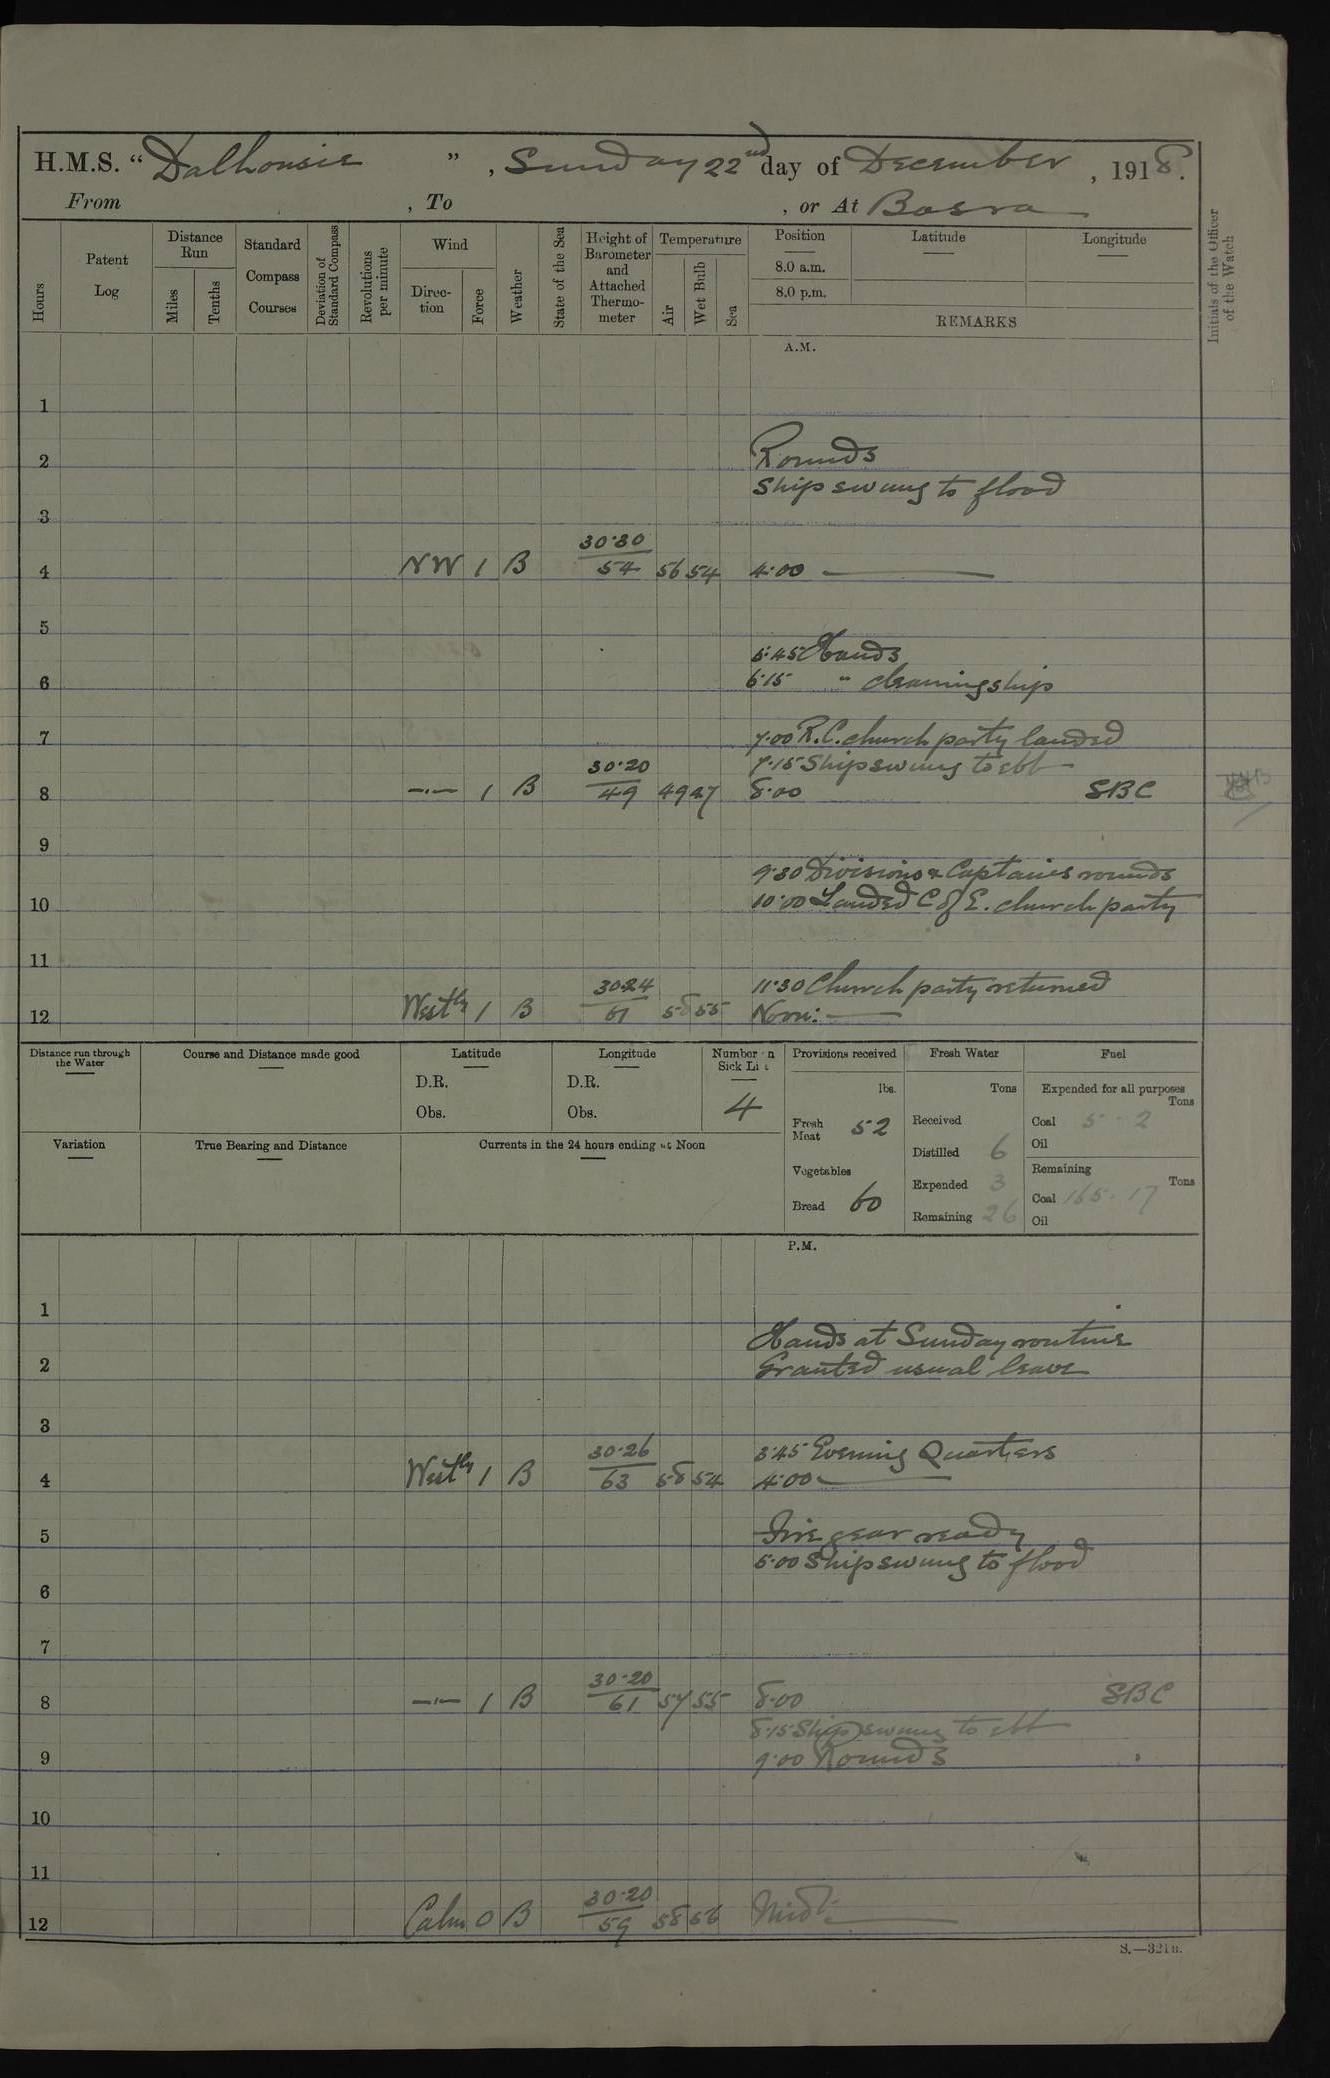 H.M.S. "Dalhousie", Sunday 22nd day of December, 1918.
From , To , or At Basra
Hours
Patent Log
Distance Run
Miles
Tenths
Standard Compass Courses
Deviation of Standard Compass
Revolutions per minute
Wind
Direc-tion
Force
Weather
State of the Sea
Height of Barometer and Attached Thermo-meter
Temperature
Air
Wet Bulb
Sea
Position
8.0 a.m.
8.0 p.m.
Latitude
Longitude
REMARKS
Initials of the Officer of the Watch
A.M.
1
2 Rounds
Ship swung to flood
3
30.30
4 NW 1 B 54 56 54 4.00 —
5
5.45 Hands
6 6.15 " cleaning ship
7 7.00 R.C. church party landed
30.20 7.15 Ship swung to ebb
8 —"— 1 B 49 49 47 8.00 SBC
9
9.30 Divisions & Captains rounds
10 10.00 Landed C of E. church party
11
30.24 11.30 Church party returned
12 Westly 1 B 61 58 55 Noon: —
Distance run through the Water
Course and Distance made good
Latitude
D.R.
Obs.
Longitude
D.R.
Obs.
Number on Sick List
4
Provisions received
lbs.
Fresh Meat 52
Vegetables
Bread 60
Fresh Water
Tons
Received
Distilled 6
Expended 3
Remaining 26
Fuel
Expended for all purposes
Tons
Coal 5 - 2
Oil
Remaining
Tons
Coal 165 - 17
Oil
Variation
True Bearing and Distance
Currents in the 24 hours ending at Noon
P.M.
1
Hands at Sunday routine
2 Granted usual leave
3
30.26 3.45 Evening Quarters
4 Westly 1 B 63 58 54 4.00 —
5 Fire gear ready
5.00 Ship swung to flood
6
7
30.20
8 —"— 1 B 61 57 55 8.00 SBC
8.15 Ship swung to ebb
9 9.00 Rounds
10
11
30.20
12 Calm 0 B 59 58 56 Midt: —
S.—321B.